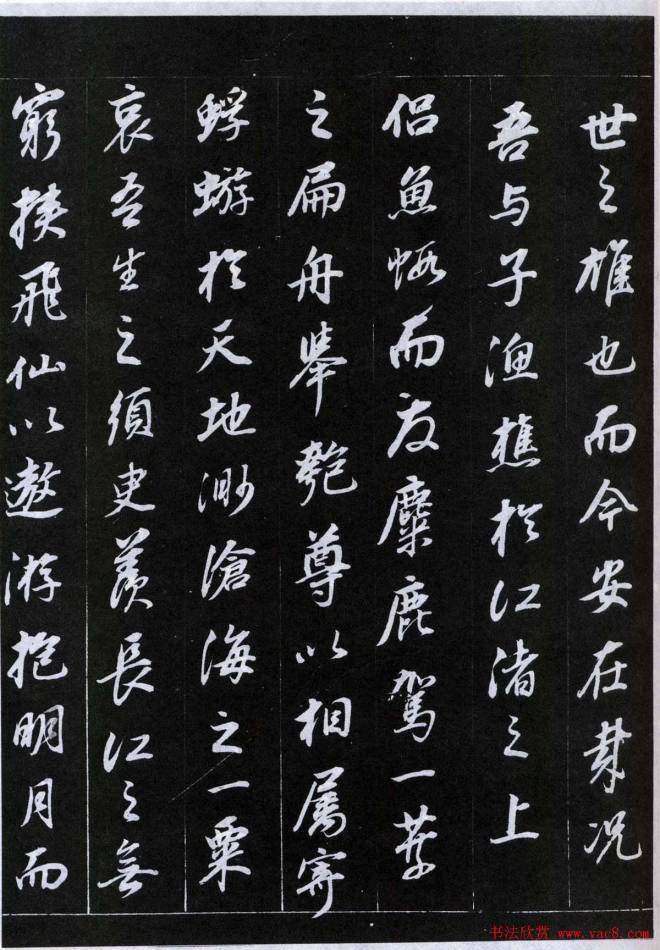 世之雄也而今安在哉况
吾与子渔樵於江渚之上
侣魚蝦而友麋鹿駕一葉
之扁舟舉匏尊以相屬寄
蜉蝣於天地渺滄海之一粟
哀吾生之須臾羨長江之無
窮挾飛仙以遨游抱明月而
书法欣赏 www.vac8.com